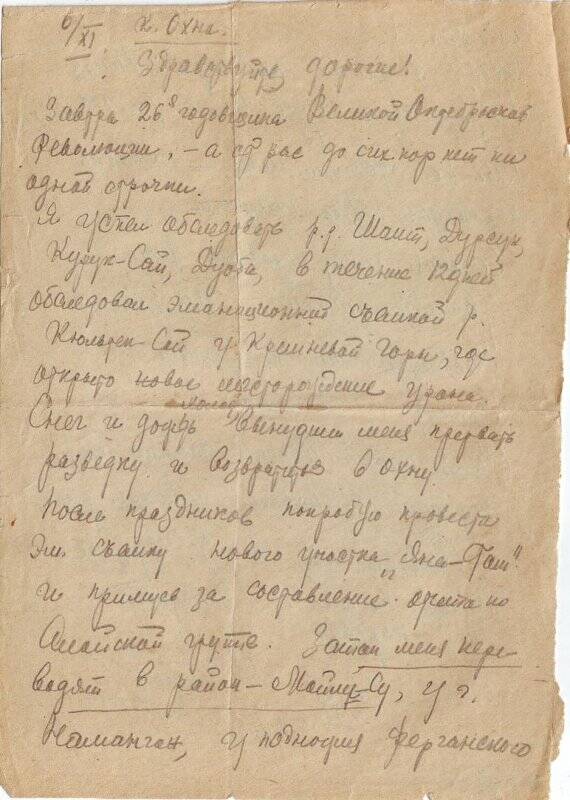 6/XI х. Охна.
Здравствуйте, дорогие!
Завтра 26ая годовщина Великой Октябрьской
Революции, – а от вас до сих пор нет ни
одной строчки.
Я успел обследовать р.р. Шаит, Дурсун,
Курук-Сай, Дуоба, в течение 12 дней
обследовал эманационной съемкой р.
Кюльтек-Сай у Кремневой горы, где
открыто новое месторождение урана.
Снег и дождь вынудили меня прервать
разведку и возвратиться в Охну
После праздников попробую провести
эм. съемку нового участка „Яна-
и примусь за составление отчета по
Алайской группе. Затем меня пере-
водят в район – Майлу-Су, у г.
Наманган, у подножия Ферганского